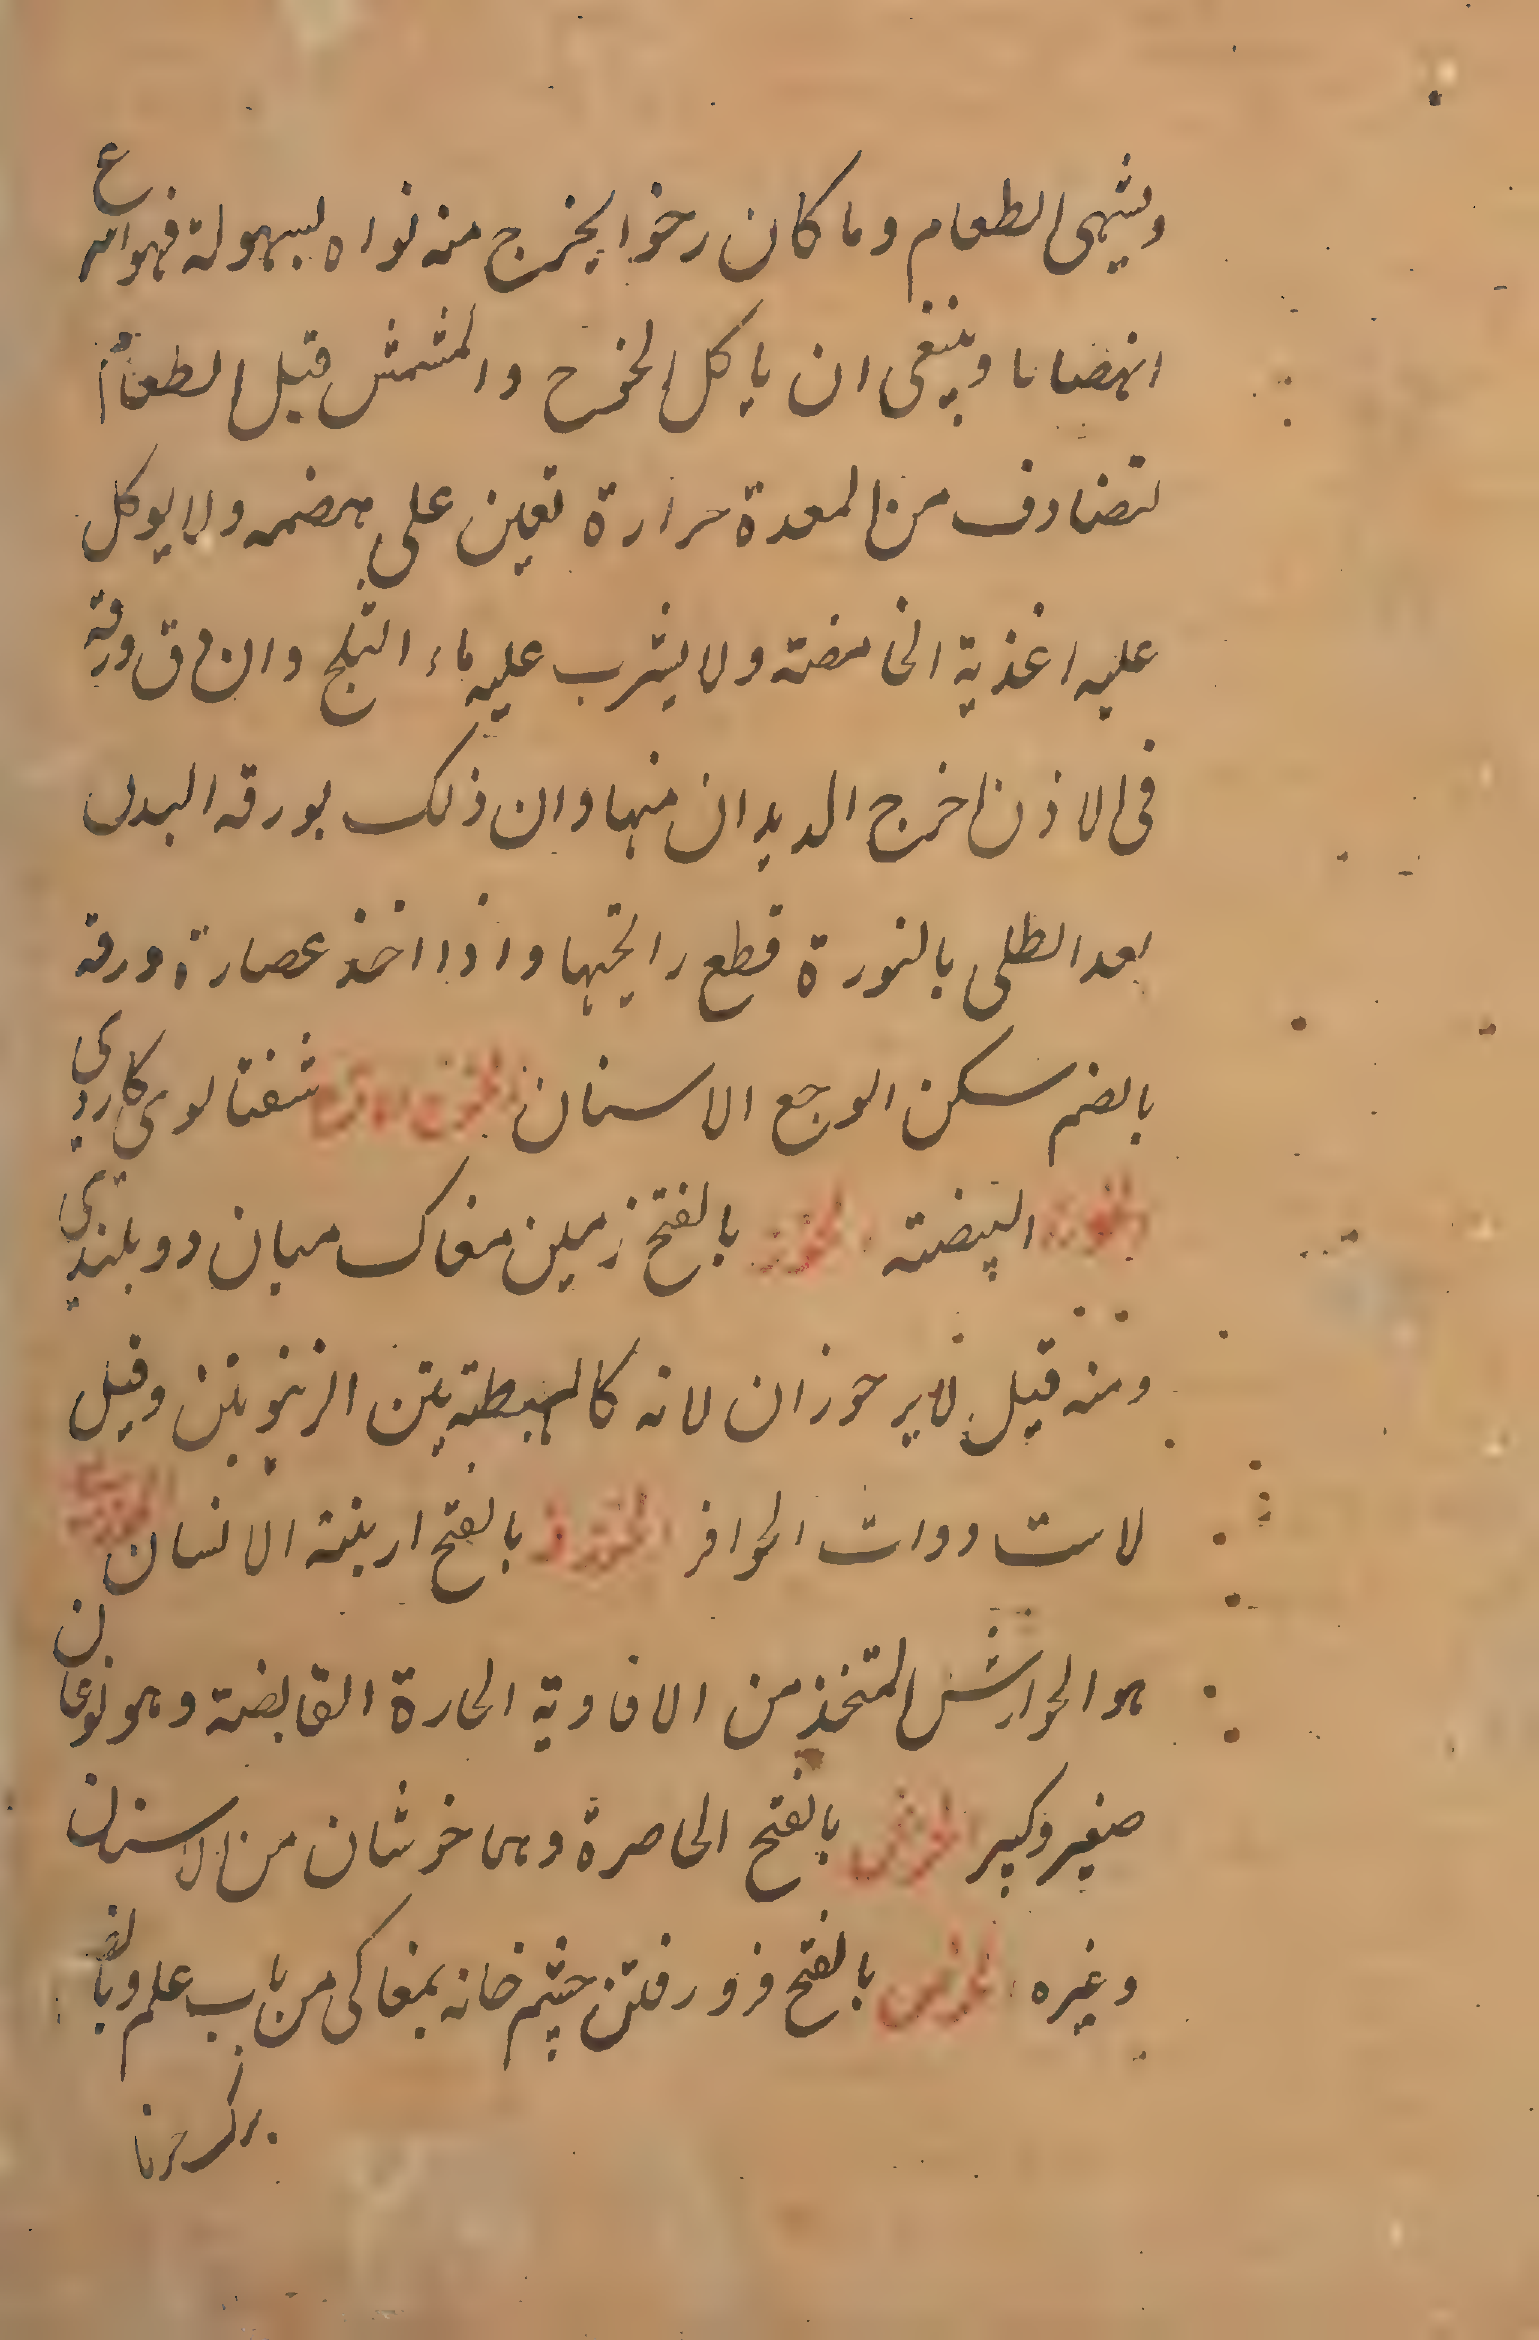 ویشهی الطعام وما كان رخوا یخرج منه نواه لبسهولة فهو اسرع
انهضاما وینبغی ان یاكل الخوخ والمشمش قبل الطعام
لتصادف من المعدة حرارة تعین علی هضمه ولا یوكل
علیه اغذیة الحامضة ولا یشرب علیه ماء الثلج وان دق ورقه
فی الاذن اخرج الدیدان منها وان ذلك بورقه البدن
بعد الطلی بالنورة قطع رایحتها واذا اخذ عصارة ورقه
بالضم سكن الوجع الاسنان الخوخ شفتالوی كاردی
البیضته بالفتح زمین مغاك میان دو بلندی
ومنه قیل للدبر خوران لانه كالهبطة بین الربوتین وقیل
لاست دوات الحوافر بالفتح اربنة الانسان
هو الجوارش المتخذ من الافاویة الحارة القابضة وهو نوعان
صغیر وكبیر الخوش بالفتح الخاصرة وهما خوشان من الانسان
وغیره الخوص بالفتح فرو رفتن چشم خانه بمغاكی من باب علم وبالفتح
برك خرما